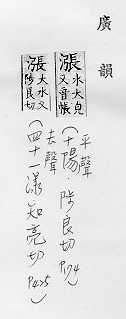 廣韻
漲 水大皃
又音帳
平聲
(十陽:陟良切 P174)
漲 大水又
陟良切
去聲
(四十一漾 知亮切 P425)